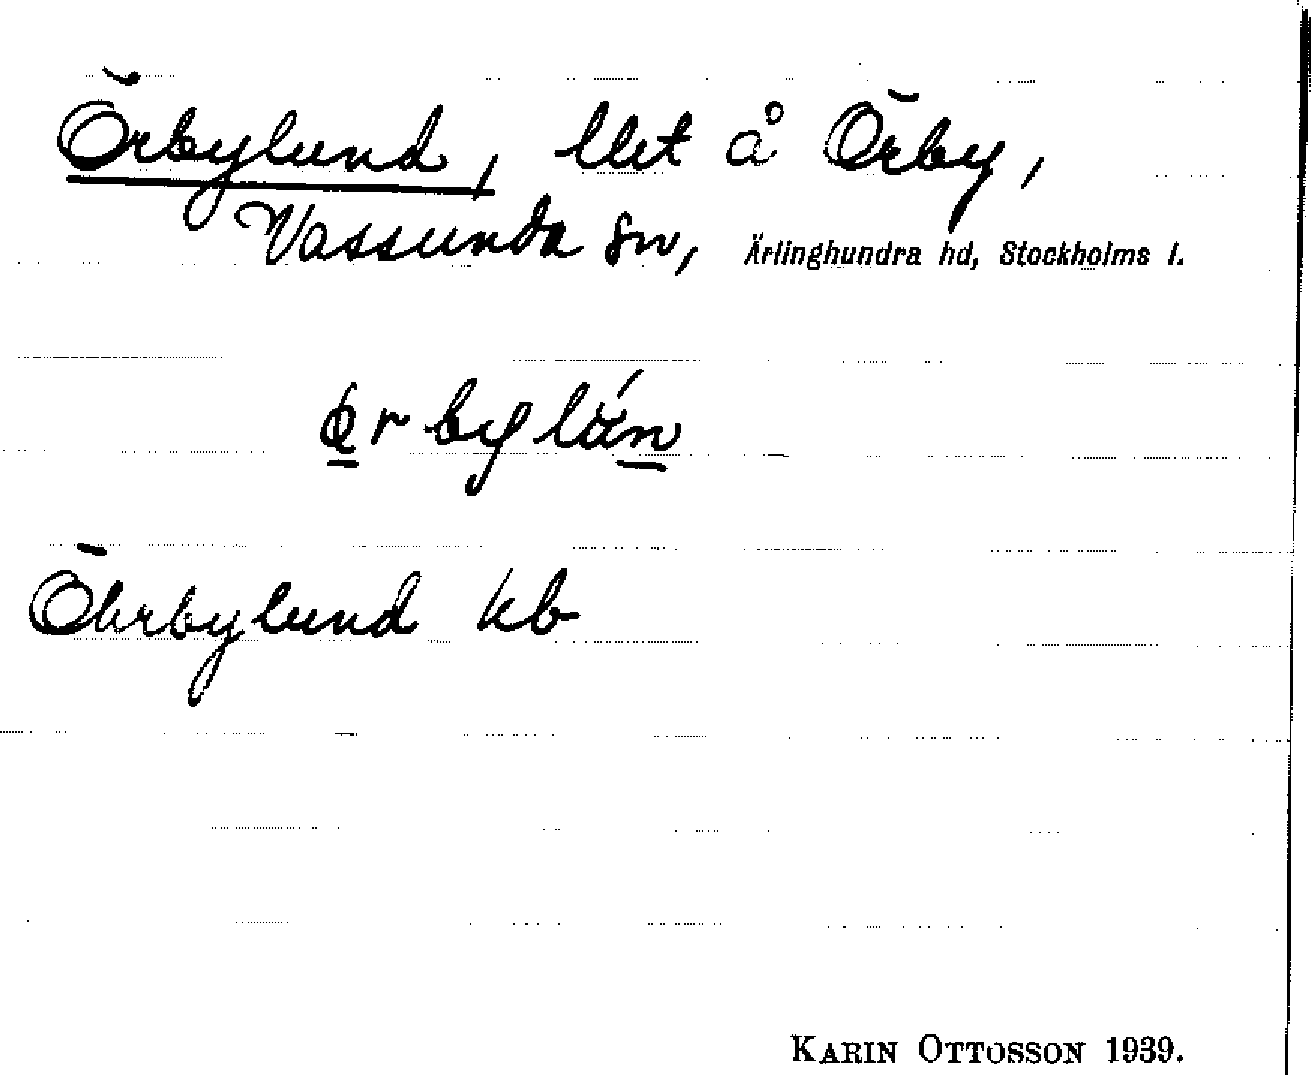 Örbylund, llet å Örby,
Vassunda sn, Ärlinghundra hd, Stockholms l.
Öhrbylund kb
KARIN OTTOSSON 1939.